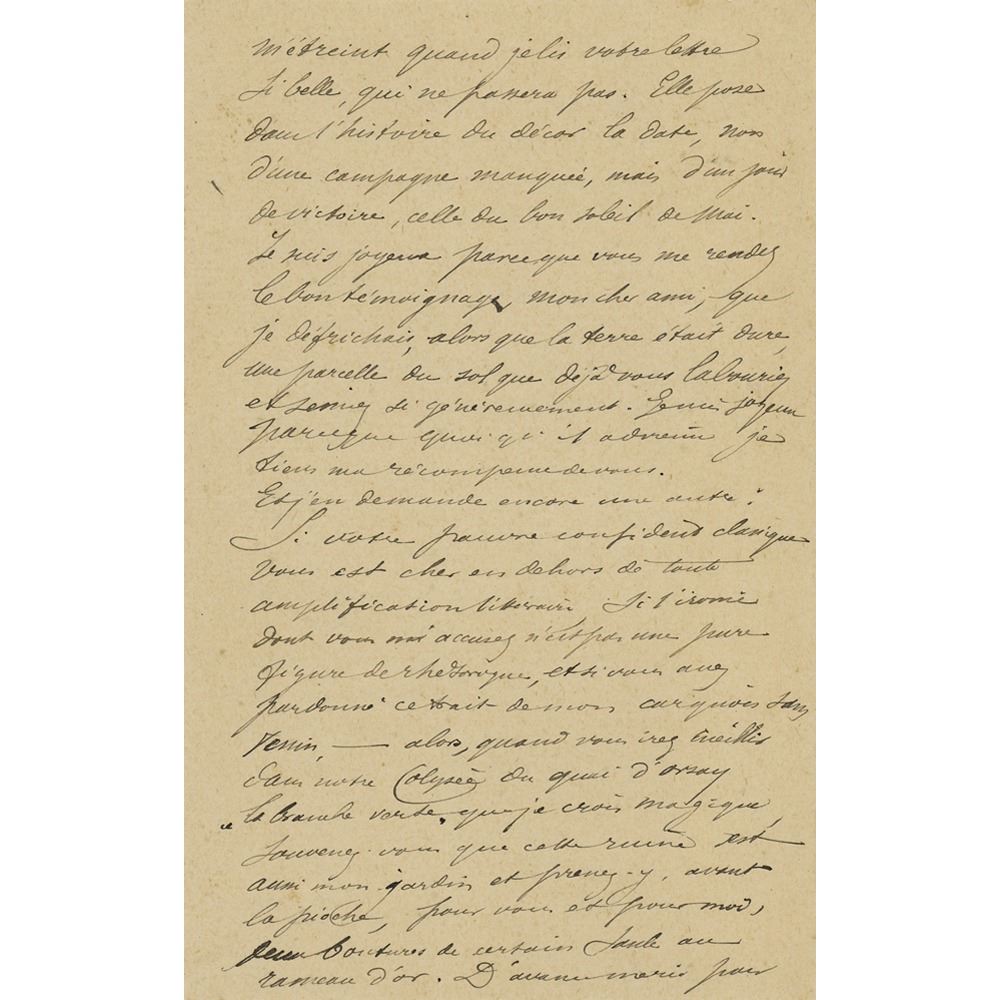 m'étreint quand je lis votre lettre
si belle, qui ne passera pas. Elle pose
dans l'histoire du décor la date, non
d'une campagne manquée, mais d'un jour
de victoire, celle du bon soleil de Mai.
Je suis joyeux parceque vous me rendez
le bon témoignage, mon cher ami, que
je défrichais, alors que la terre était dure,
une parcelle du sol que déjà vous labouriez
et semiez si généreusement. Je suis joyeux
parceque quoi qu'il advienne je
tiens ma récompense de vous.
Et j'en demande encore une autre :
Si votre pauvre confident classique
vous est cher en dehors de toute
amplification littéraire. Si l'ironie
dont vous m'accusez n'est pas une pure
figure de rhétorique, et si vous avez
pardonné ce trait de mon carquois sans
venin, — alors, quand vous irez cueillir
dans notre Colysée du quai d'orsay
"la branche verte" que je crois magique,
souvenez-vous que cette ruine est
aussi mon jardin et prenez-y, avant
la pioche, pour vous et pour moi,
deux boutures de certain saule au
rameau d'or. D'avance merci pour